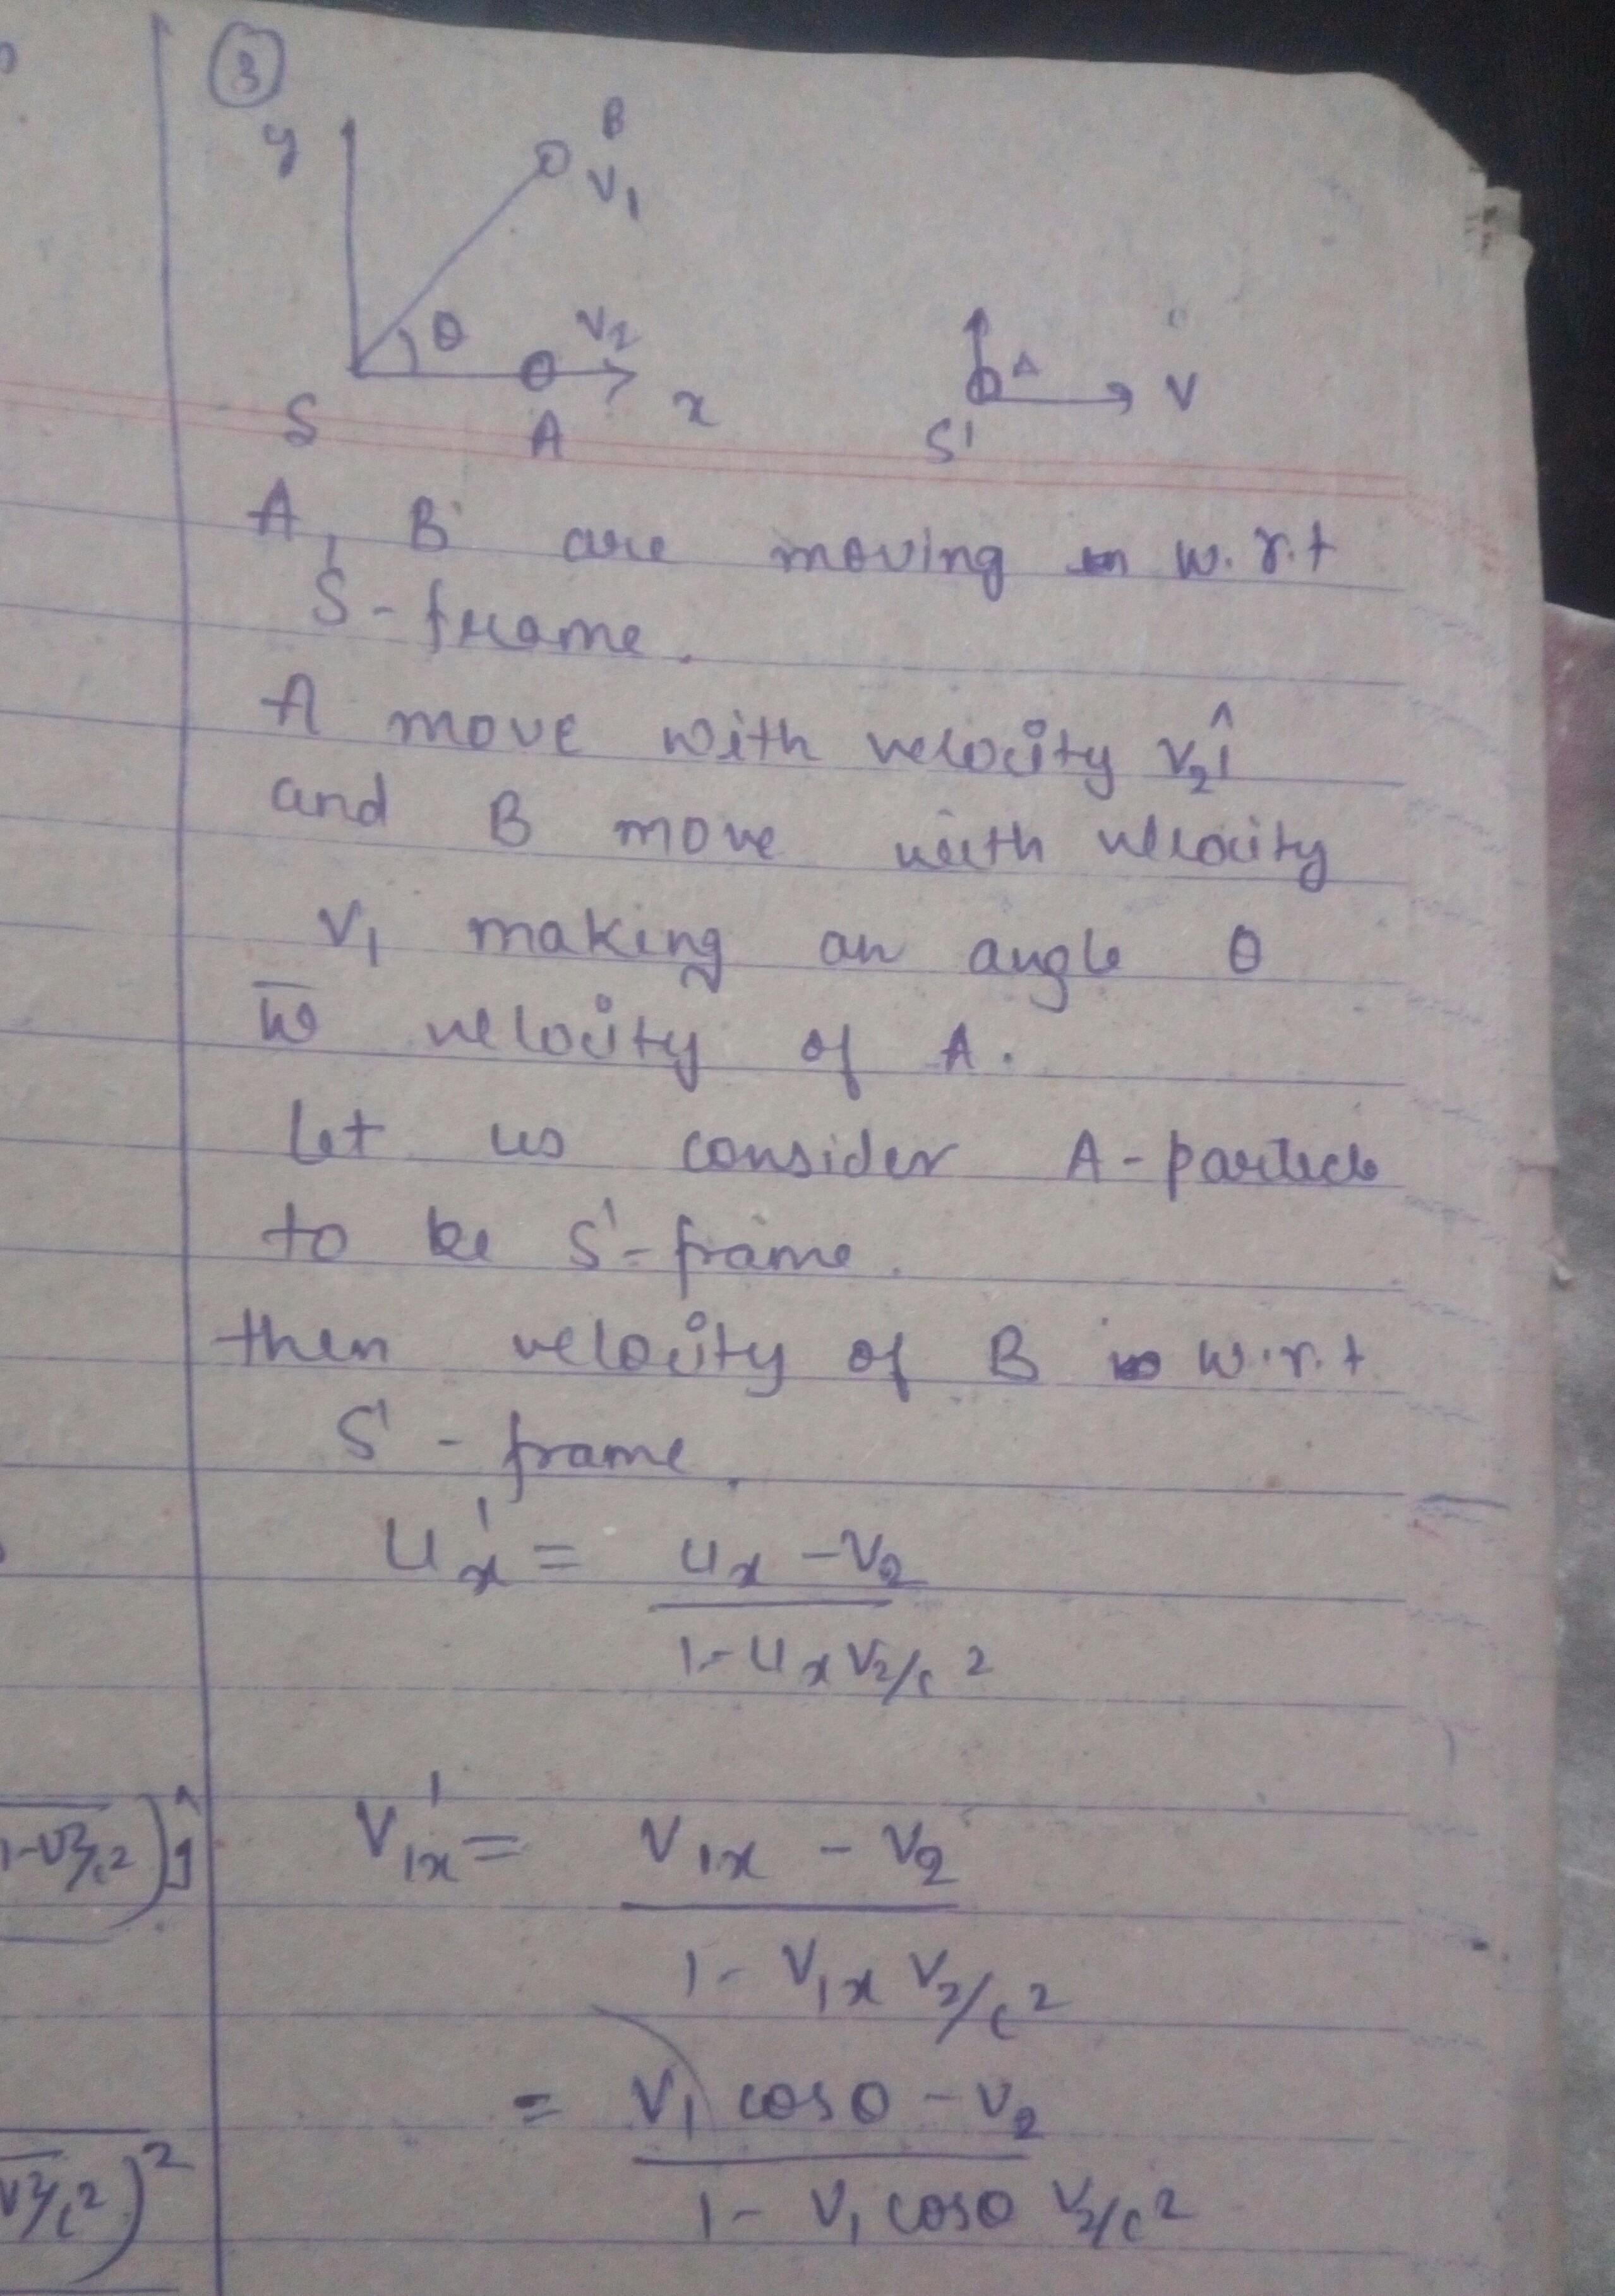 3
y
B
V₁
θ
V₂
S
A
x
A
V
S'
A, B are moving w.r.t
S-frame.
A move with velocity V₂î
and B move with velocity
V₁ making an angle θ
w̅ velocity of A.
Let us consider A-particle
to be S'-frame.
then velocity of B w.r.t
S' - frame.
u'ₓ = (uₓ - V₂) / (1 - uₓV₂/c²)
V'₁ₓ = (V₁ₓ - V₂) / (1 - V₁ₓ V₂/c²)
= (V₁ cosθ - V₂) / (1 - V₁ cosθ V₂/c²)